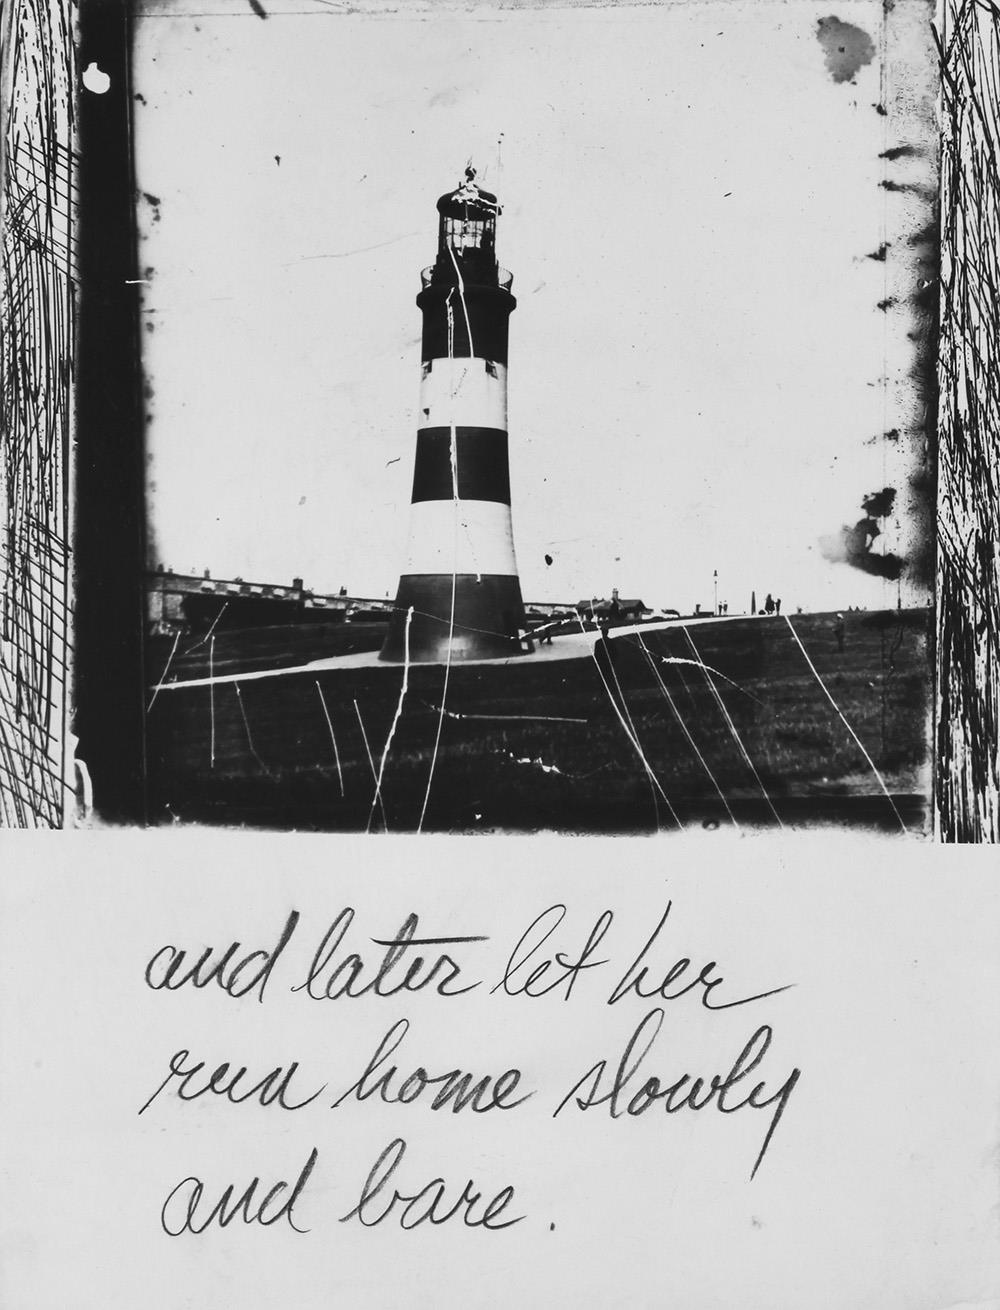 and later let her
run home slowly
and bare.